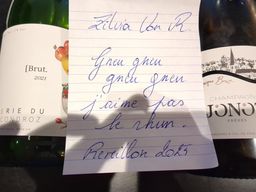 Zélia Von R.
Gneu gneu
gneu gneu
j'aime pas
le rhum.
Réveillon 2023
[Brut.
2021
RIE DU
ONDROZ
JONC
FRÈRES